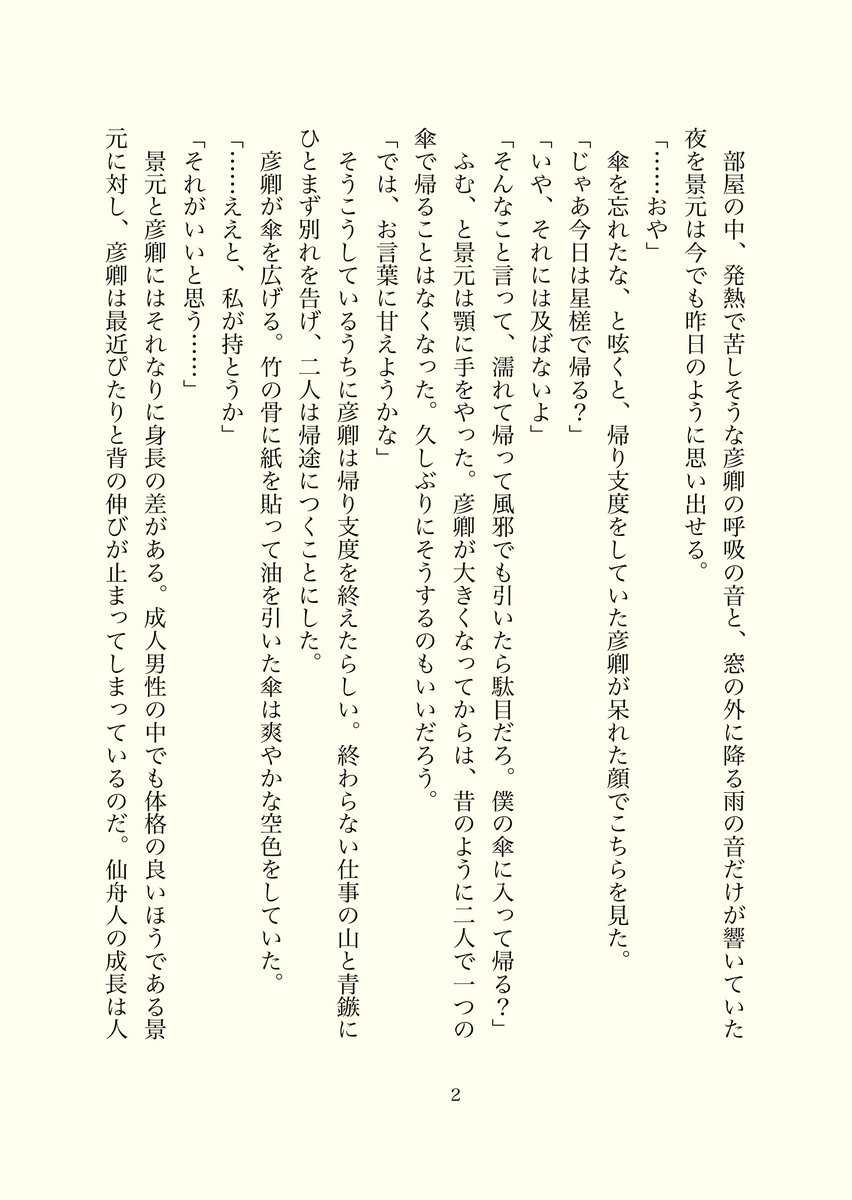 部屋の中、発熱で苦しそうな彦卿の呼吸の音と、窓の外に降る雨の音だけが響いていた
夜を景元は今でも昨日のように思い出せる。
「……おや」
　傘を忘れたな、と呟くと、帰り支度をしていた彦卿が呆れた顔でこちらを見た。
「じゃあ今日は星槎で帰る？」
「いや、それには及ばないよ」
「そんなこと言って、濡れて帰って風邪でも引いたら駄目だろ。僕の傘に入って帰る？」
　ふむ、と景元は顎に手をやった。彦卿が大きくなってからは、昔のように二人で一つの
傘で帰ることはなくなった。久しぶりにそうするのもいいだろう。
「では、お言葉に甘えようかな」
　そうこうしているうちに彦卿は帰り支度を終えたらしい。終わらない仕事の山と青鏃に
ひとまず別れを告げ、二人は帰途につくことにした。
　彦卿が傘を広げる。竹の骨に紙を貼って油を引いた傘は爽やかな空色をしていた。
「……ええと、私が持とうか」
「それがいいと思う……」
　景元と彦卿にはそれなりに身長の差がある。成人男性の中でも体格の良いほうである景
元に対し、彦卿は最近ぴたりと背の伸びが止まってしまっているのだ。仙舟人の成長は人
2